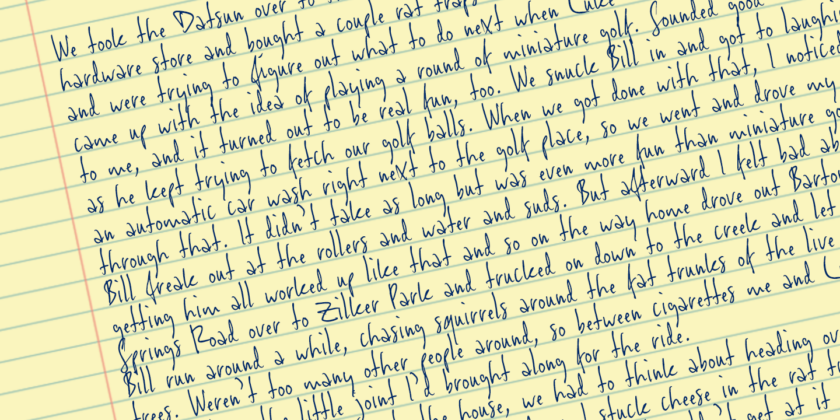 We took the Datsun over to
hardware store and bought a couple rat traps
and were trying to figure out what to do next when Luke
came up with the idea of playing a round of miniature golf. Sounded good
to me, and it turned out to be real fun, too. We snuck Bill in and got to laughing
as he kept trying to fetch our golf balls. When we got done with that, I noticed
an automatic car wash right next to the golf place, so we went and drove my
through that. It didn't take as long, but was even more fun than miniature go
Bill freak out at the rollers and water and suds. But afterward I felt bad ab
getting him all worked up like that and so on the way home drove out Barton
Springs Road over to Zilker Park and trucked on down to the creek and let
Bill run around a while, chasing squirrels around the fat trunks of the live
trees. Weren't too many other people around, so between cigarettes me and L
little joint I'd brought along for the ride.
the house, we had to think about heading ov
I stuck cheese in the rat t
get at it